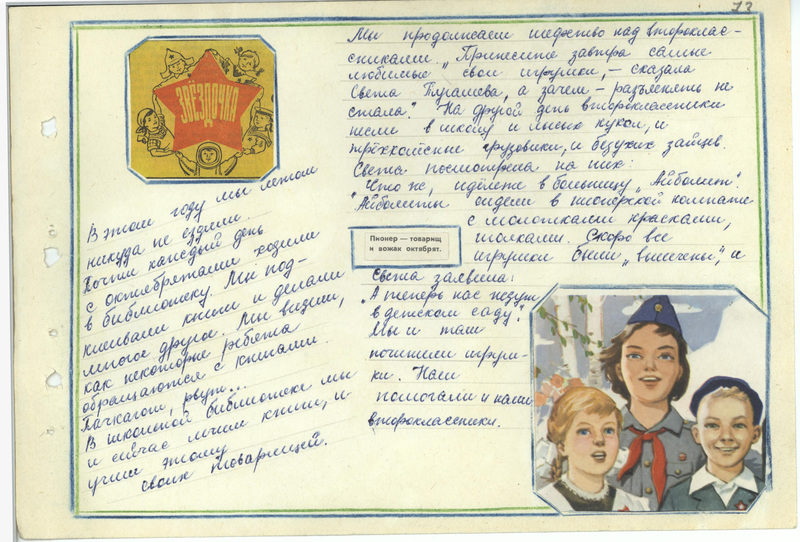 73
ЗВЁЗДОЧКА
В этом году мы летом
никуда не ездили.
Почти каждый день
с октябрятами ходили
в библиотеку. Мы под-
клеивали книги и делали
многое другое. Мы видим,
как некоторые ребята
обращаются с книгами.
Пачкают, рвут...
В школьной библиотеке мы
и сейчас лечим книги, и
учим этому
своих товарищей.
Мы продолжаем шефство над второклас-
сниками „Принесите завтра самые
любимые свои игрушки, – сказала
Света Тугашева, а зачем – разъяснять не
стала." На другой день второклассники
несли в школу и лысых кукол, и
трёхколёсные грузовики, и безухих зайцев.
Света посмотрела на них:
"Что же, идёмте в больницу „Айболит".
"Айболиты сидели в пионерской комнате
с молотками красками,
иголками. Скоро все
Пионер — товарищ
и вожак октябрят.
игрушки были „вылечены", и
Света заявила:
„А теперь нас ждут
в детском саду."
Мы и там
починили игруш-
ки. Нам
помогали и наши
второклассники.